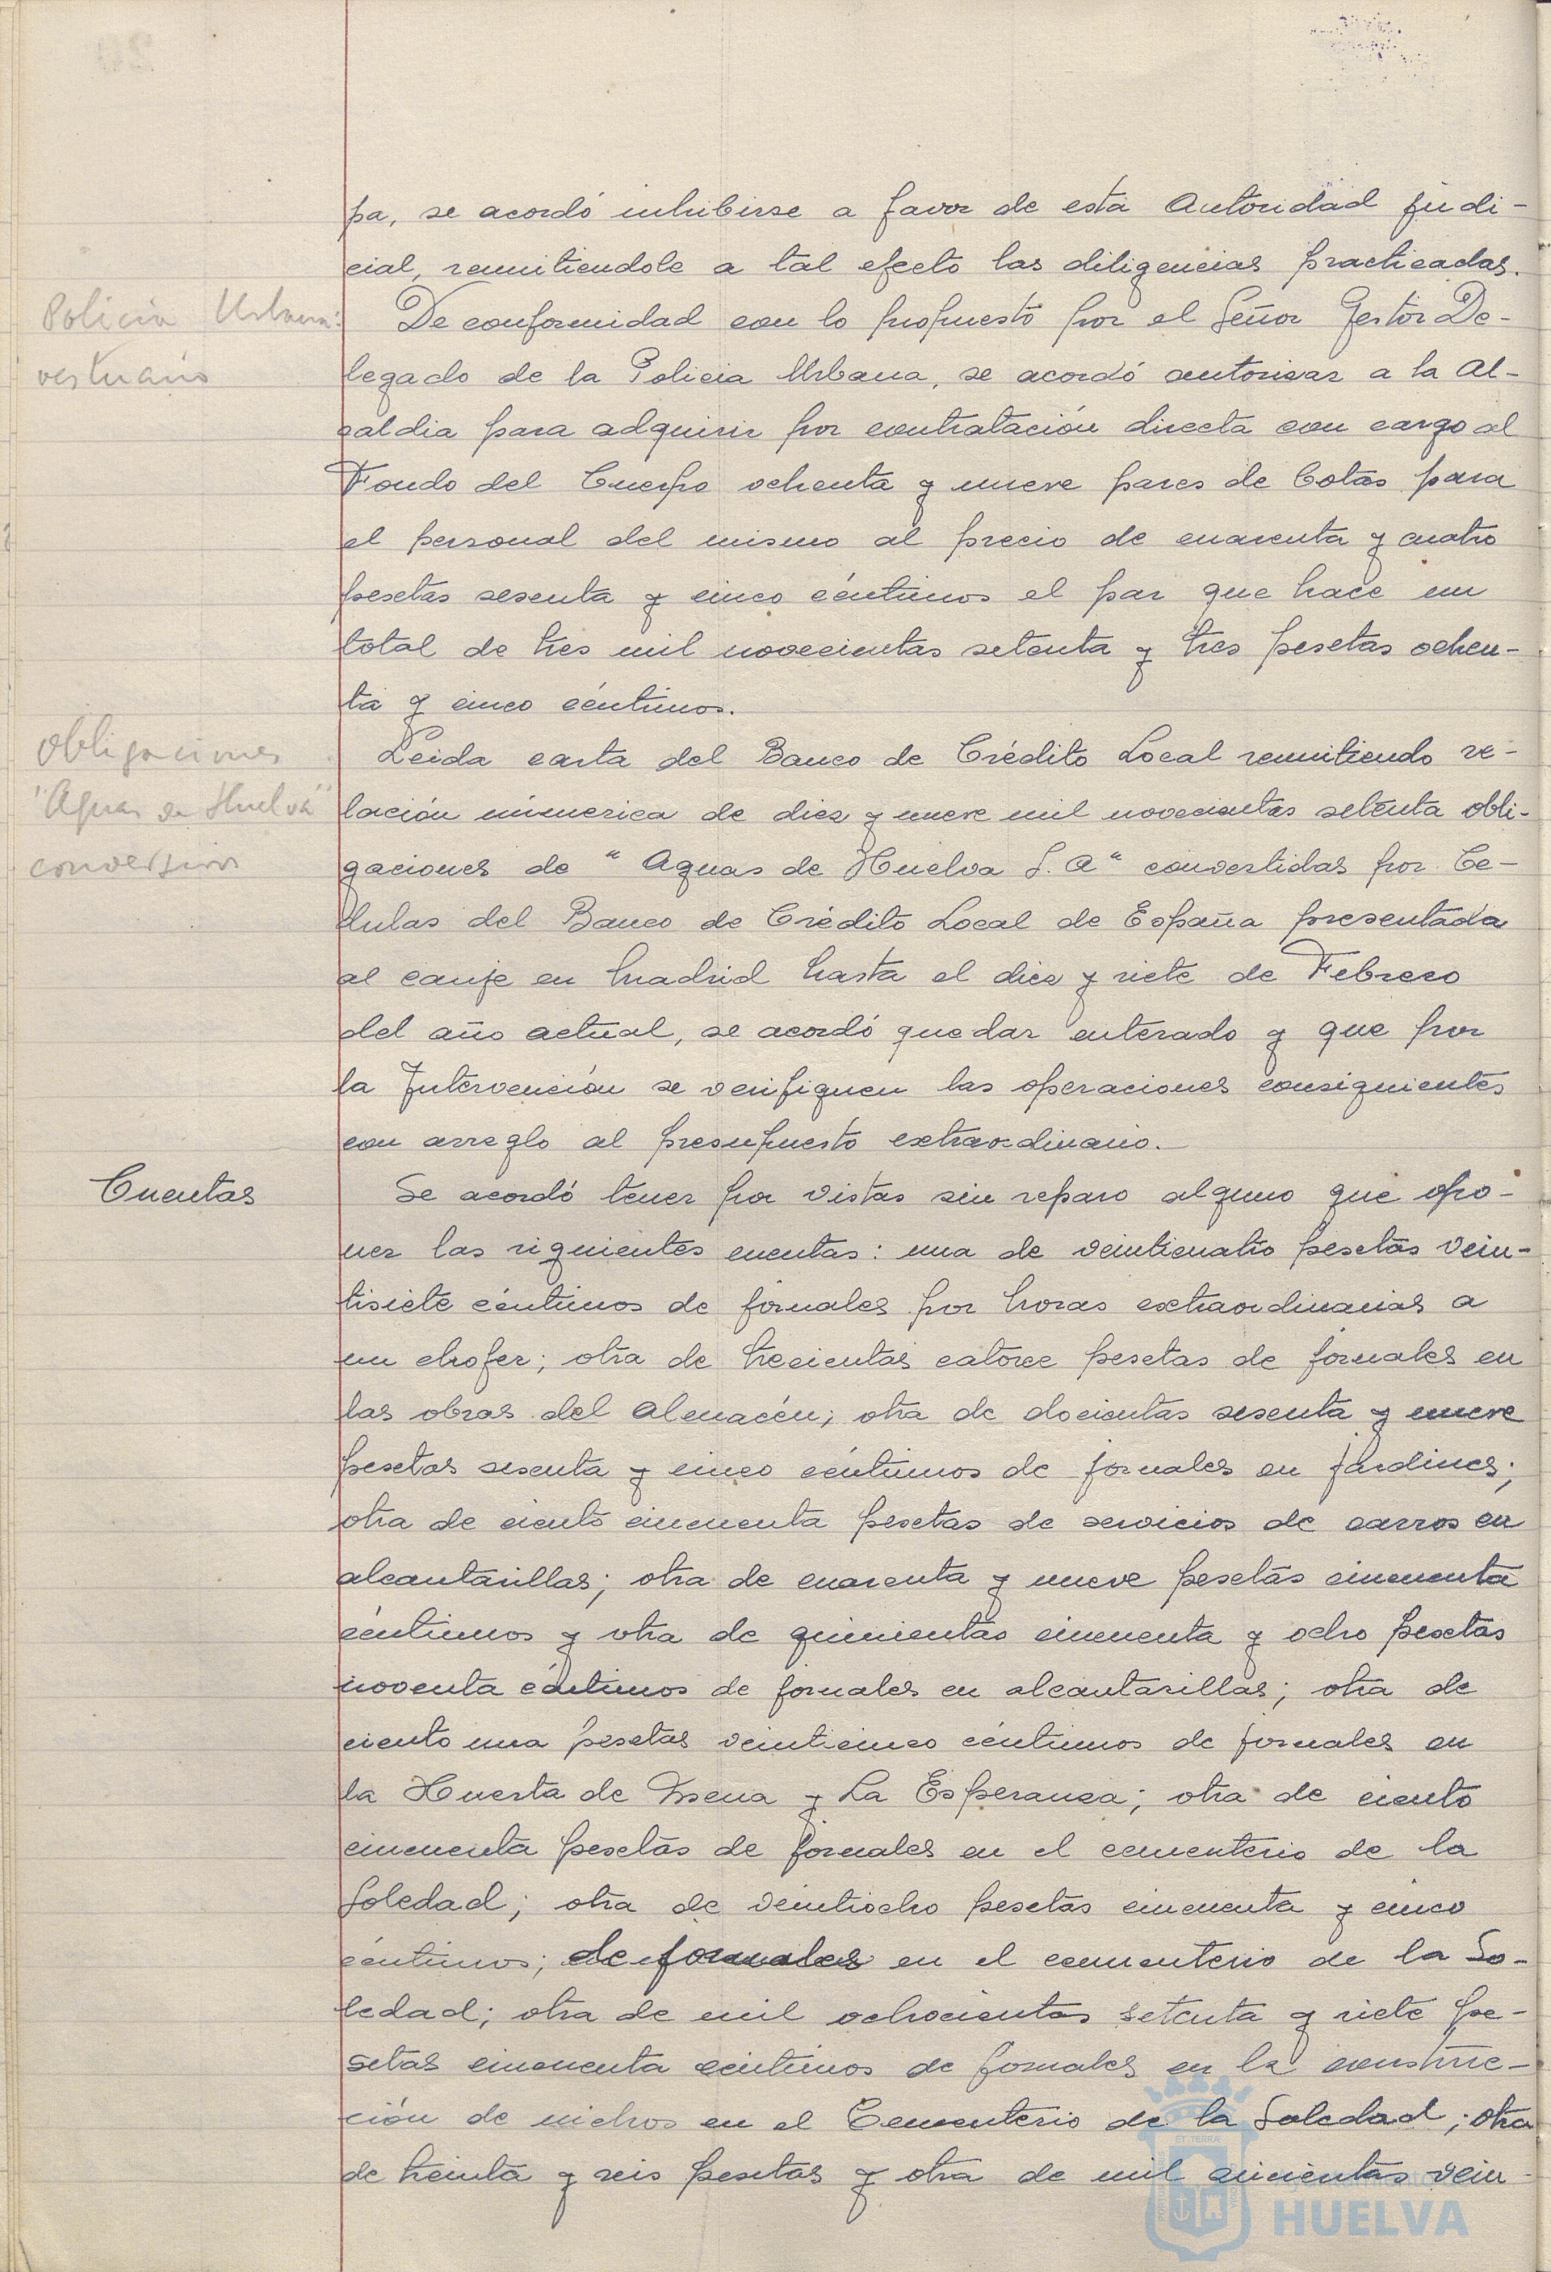 pa, se acordó inhibirse a favor de esta Autoridad judi-
cial, remitiendole a tal efecto las diligencias practicadas.
Policia Urbana:
vestuario
De conformidad con lo propuesto por el Señor Gestor De-
legado de la Policia Urbana, se acordó autorizar a la Al-
caldia para adquirir por contratación directa con cargo al
Fondo del Cuerpo ochenta y nueve pares de botas para
el personal del mismo al precio de cuarenta y cuatro
pesetas sesenta y cinco céntimos el par que hace un
total de tres mil novecientas setenta y tres pesetas ochen-
ta y cinco céntimos.
obligaciones
"Aguas de Huelva"
conversion
Leida carta del Banco de Crédito Local remitiendo re-
lación númerica de diez y nueve mil novecientas setenta obli-
gaciones de "Aguas de Huelva S.A" convertidas por Ce-
dulas del Banco de Crédito Local de España presentada
al canje en Madrid hasta el diez y siete de Febrero
del año actual, se acordó quedar enterado y que por
la Intervención se verifiquen las operaciones consiguientes
con arreglo al presupuesto extraordinario.
Cuentas
Se acordó tener por vistas sin reparo alguno que opo-
ner las siguientes cuentas: una de veinticuatro pesetas vein-
tisiete céntimos de jornales por horas extraordinarias a
un chofer; otra de trecientas catorce pesetas de jornales en
las obras del Almacén; otra de docientas sesenta y nueve
pesetas sesenta y cinco céntimos de jornales en jardines;
otra de ciento cincuenta pesetas de servicios de carros en
alcantarillas; otra de cuarenta y nueve pesetas cincuenta
céntimos y otra de quinientas cincuenta y ocho pesetas
noventa céntimos de jornales en alcantarillas; otra de
ciento una pesetas veinticinco céntimos de jornales en
la Huerta de Mena y La Esperanza; otra de ciento
cincuenta pesetas de jornales en el cementerio de la
Soledad; otra de veintiocho pesetas cincuenta y cinco
céntimos; de jornales en el cementerio de la So-
ledad; otra de mil ochocientas setenta y siete pe-
setas cincuenta céntimos de jornales en la construc-
ción de nichos en el Cementerio de la Soledad; otra
de treinta y seis pesetas y otra de mil quinientas vein-
Ayuntamiento de
HUELVA